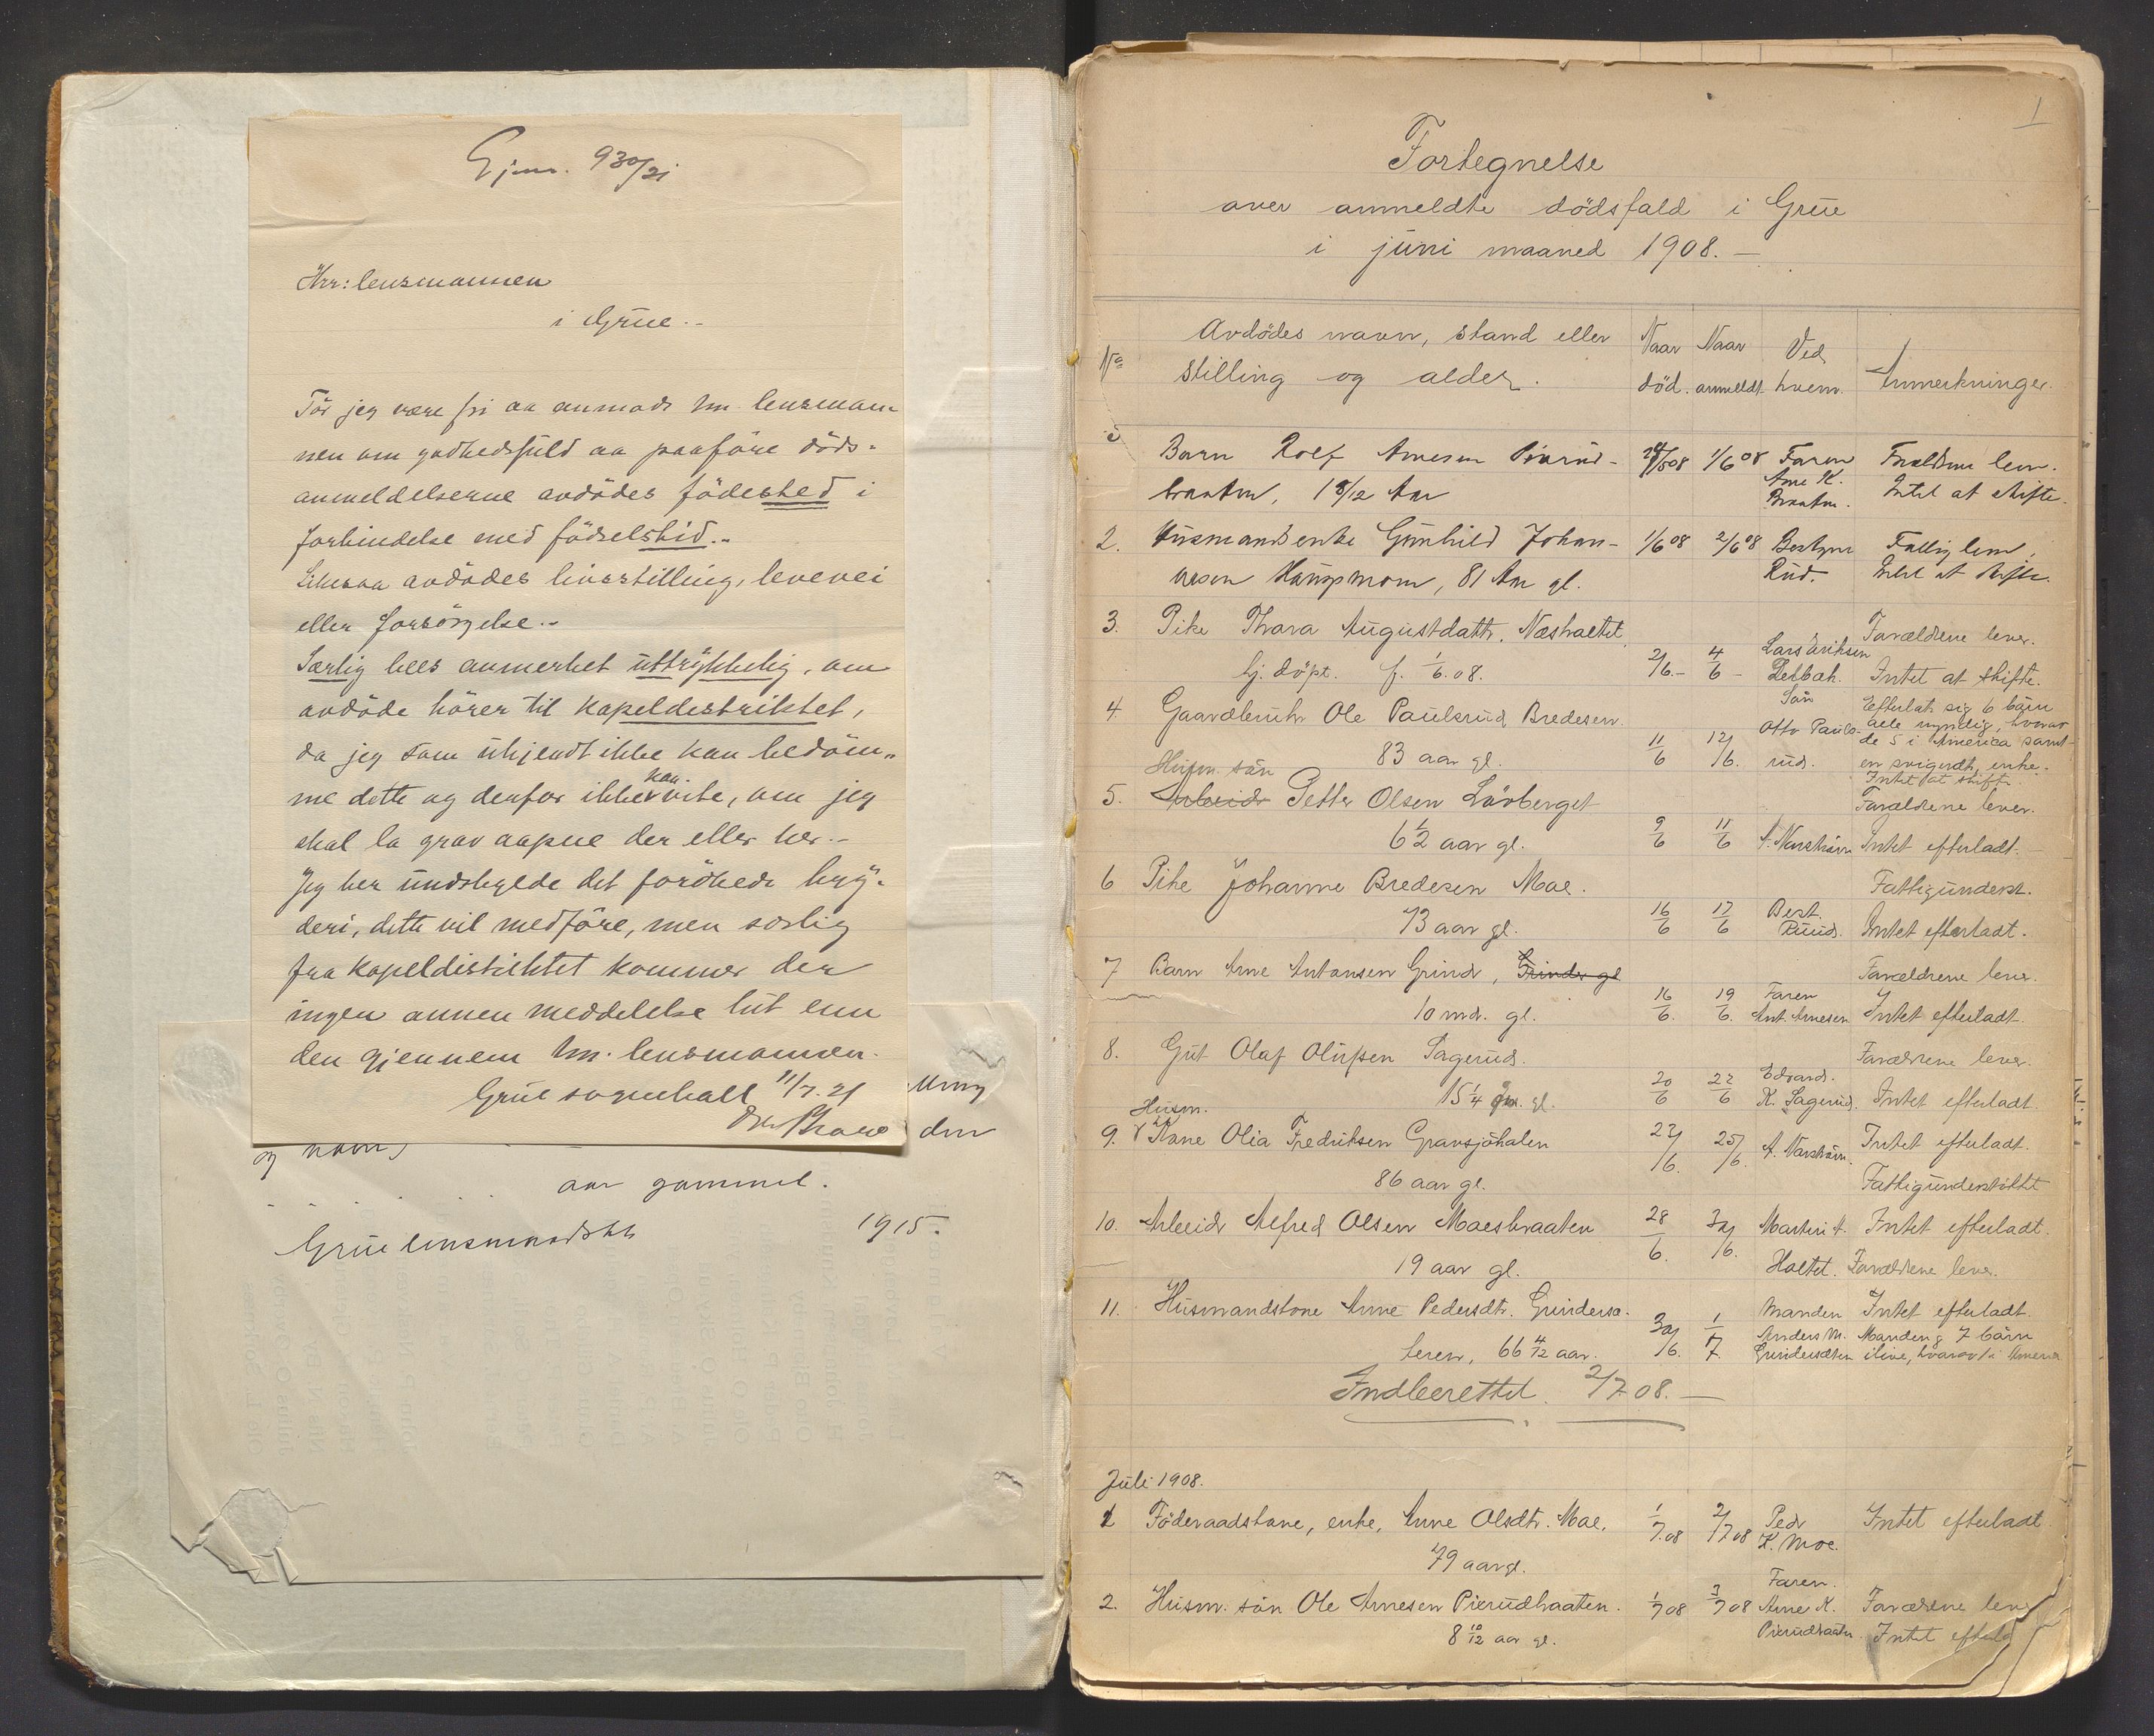 Gjnr. 930/21
Hrr: lensmannen
i Grue.-
Tör jeg være fri aa anmode hr. lensman-
nen om godhedsfuld aa paaføre döds-
anmeldelserne avdödes födested i
forbindelse med födselstid.-
Likesaa avdödes livsstilling, levevei
eller forsörgelse.-
Særlig bees anmerket uttrykkelig, om
avdöde hörer til kapeldistriktet,
da jeg som ukjendt ikke kan bedöm-
me dette og derfor ikke kan vite, om jeg
skal la grav aapne der eller her.-
Jeg ber undskylde det forökede bry-
deri, dette vil medföre, men særlig
fra kapeldistriktet kommer der
ingen annen meddelelse hit enn
den gjennem hr. lensmannen.
Grue sognekall 11/7.21
den
og navn,
aar gammel.
Grue lensmandsktr 1915.
1
Fortegnelse
over anmeldte dödsfald i Grue
i juni maaned 1908.-
No Avdödes navn, stand eller stilling og alder. Naar död. Naar anmeldt Ved hvem. Anmerkninger.
Barn Rolf Arnesen Pierud- 1/6 08 Faren Forældrene lever.
braaten, 1 8/12 Aar Arne K. Braaten. Intet at skifte.
2. Husmandsenke Gunhild Johan- 1/6 08 2/6 08 Bestyrer Fattiglem.
nesen Haugsmoen, 81 Aar gl. Rud. Intet at skifte.
3. Pike Thora Augustdattr. Næsholtet Forældrene lever.
hj. döpt. f. 1/6.08. 2/6.- 4/6- Lars Eriksen Delbæk. Intet at skifte.
4 Gaardbruker Ole Paulsrud Bredesen. Sön Efterlater sig 6 bärn
83 aar gl. 11/6 12/6. Otto Pauls- alle myndig, hvorav
rud. de 5 i Amerika samt
en svigerdtr, enke.
Intet at skifte
Husm. sön
5. Arbeider Petter Olsen Lövberget Forældrene lever.
6 1/2 aar gl. 9/6 11/6 A. Narström Intet efterladt.
6 Pike Johanne Bredesen Moe. Fattigunderst.
73 aar gl. 16/6 17/6 Best. Ruud. Intet efterladt.
7 Barn Arne Antonsen Grinder, Grinder gl Forældrene lever.
10 mdr. gl. 16/6. 19/6. Faren Ant. Arnesen Intet efterladt
8. Gut Olaf Olufsen Sagerud. Forældrene lever
15 1/4 aar. gl. 20/6 22/6 Edvard. K. Sagerud. Intet efterladt.
Husm.
9. Kone Olia Fredriksen Gravsjöhalen 23/6. 25/6. A. Narström. Intet efterladt.
86 aar gl. Fattigunderstöttet
10. Arbeider Alfred Olsen Moesbraaten 28/6. 30/6. Martin A. Intet efterladt.
19 aar gl. Holtet. Forældrene lever.
11. Husmandskone Anne Pedersdtr. Grindersæ- Manden Intet efterladt.
teren, 66 4/12 aar. 30/6. 1/7. Anders M. Manden og 7 bärn
Grindersæteren ilive, hvorav 1 i Amerika
Indberettet. 2/7 08.-
Juli 1908.
1 Föderaadskone, enke, Anne Olsdtr. Moe. 1/7.08 2/7 08 Peder K. Moe. Intet efterladt
79 aar gl.
Faren.
2. Husm. sön Ole Arnesen Pierudbraaten. 1/7 08 3/7 08 Arne K. Forældrene lever
8 10/12 aar gl. Pierudbraaten. Intet efterla